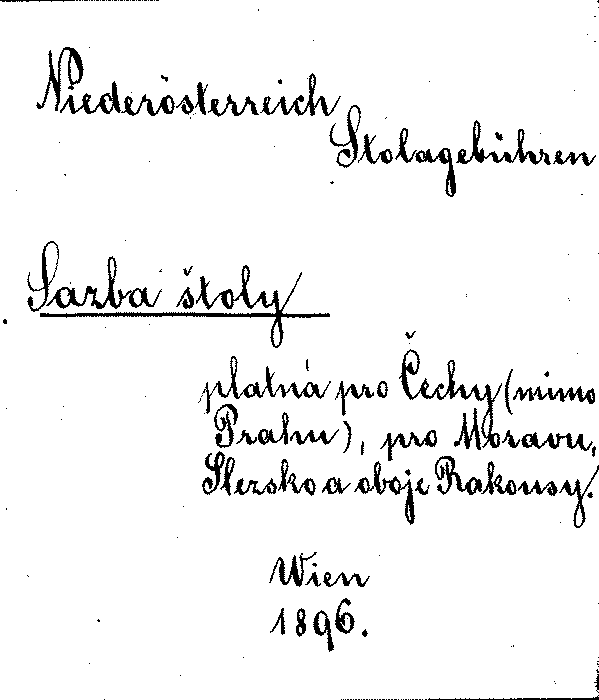 Niederösterreich
Stolagebühren
Sazba štoly
platná pro Čechy (mimo
Prahu), pro Moravu,
Slezsko a oboje Rakousy.
Wien
1896.